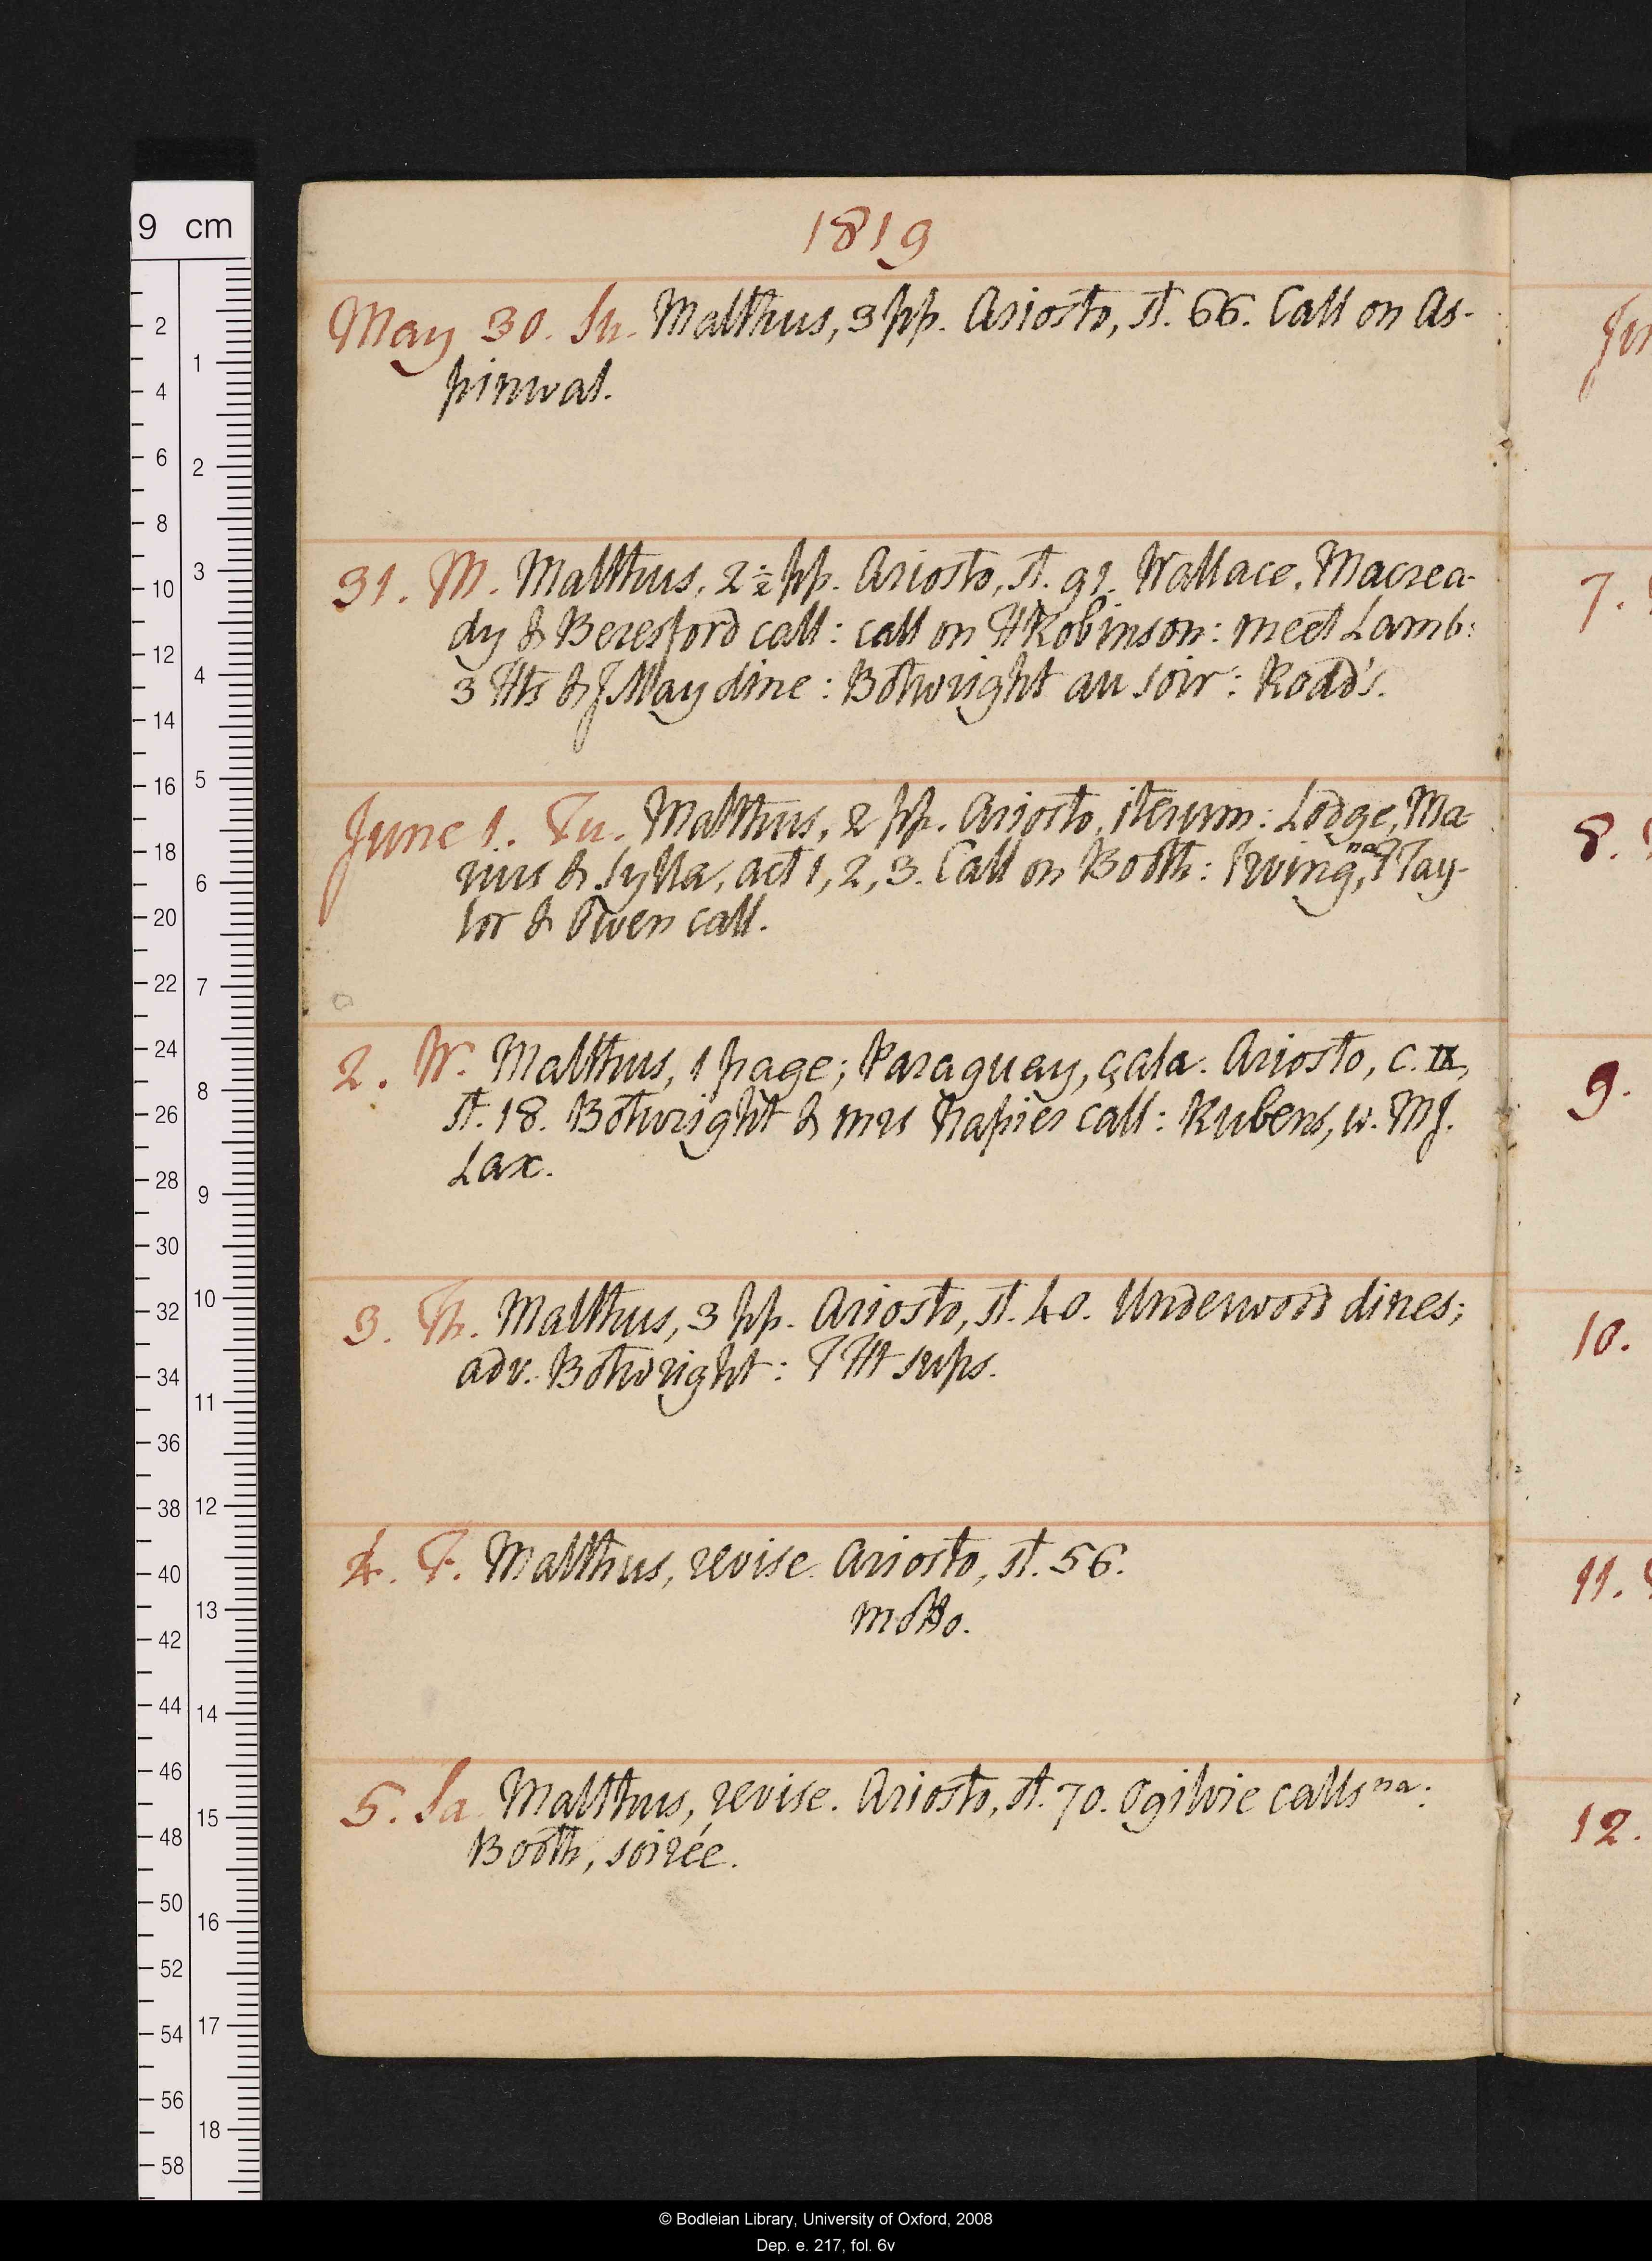 1819
May 30. Su. Malthus, 3 pp. Ariosto, st. 66. Call on As-
pinwal.
31. M. Malthus, 2½ pp. Ariosto, st. 91. Wallace, Macrea-
dy & Beresford call: call on HRobinson: meet Lamb:
3 Hts & JMay dine: Botwright au soir: Road's.
June 1. Tu. Malthus, 2 pp. Ariosto, iterum: Lodge, Ma-
rius & Sylla, act 1, 2, 3. Call on Booth: Irving, na, T Tay-
lor & Owen call.
2. W. Malthus, 1 page; Paraguay, çala. Ariosto, c. IX,
st. 18. Botwright & mrs Napier call: Rubens, w. MJ.
Lax.
3. Th. Malthus, 3 pp. Ariosto, st. 40. Underwood dines;
adv. Botwright: T Ht sups.
4. F. Malthus, revise. Ariosto, st. 56.
motto.
5. Sa. Malthus, revise. Ariosto, st. 70. Ogilvie calls na:
Booth, soirée.
Jun
7.
8.
9.
10.
11.
12.
9 cm
2 4 6 8 10 12 14 16 18 20 22 24 26 28 30 32 34 36 38 40 42 44 46 48 50 52 54 56 58
1 2 3 4 5 6 7 8 9 10 11 12 13 14 15 16 17 18
© Bodleian Library, University of Oxford, 2008
Dep. e. 217, fol. 6v